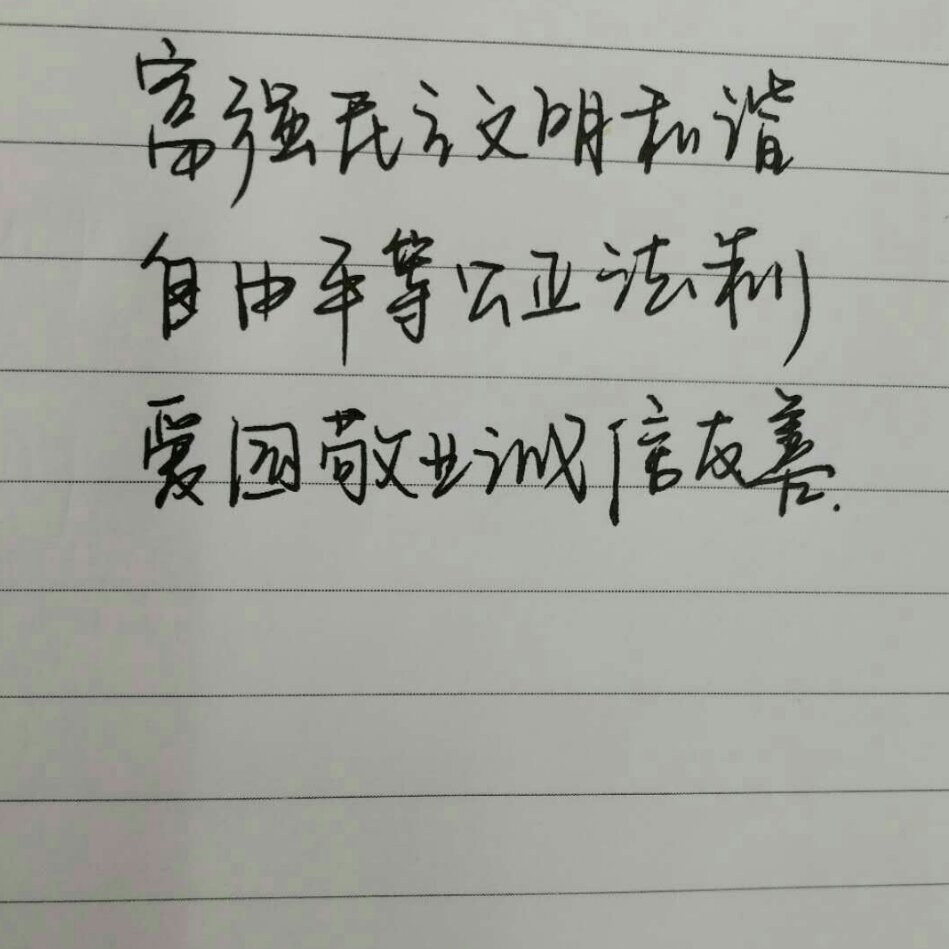 富强民主文明和谐
自由平等公正法制
爱国敬业诚信友善.